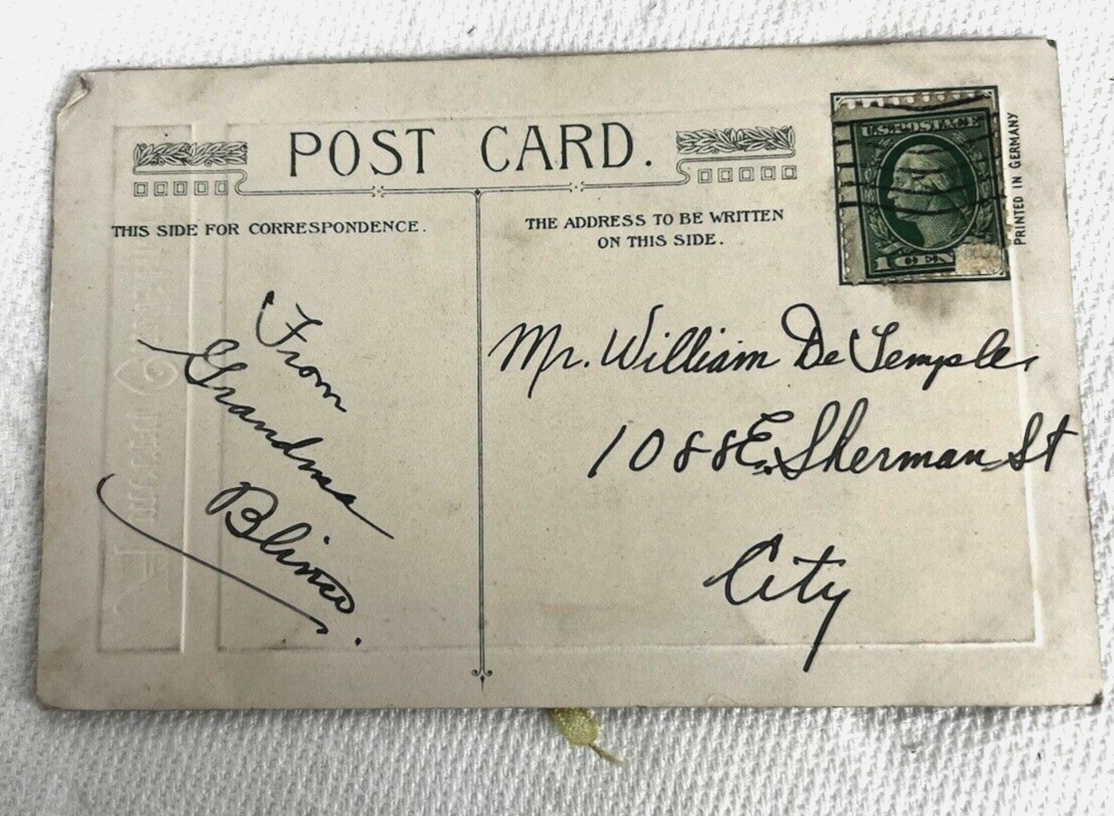 POST CARD.
THIS SIDE FOR CORRESPONDENCE.
THE ADDRESS TO BE WRITTEN
ON THIS SIDE.
U.S. POSTAGE
1 CEN
PRINTED IN GERMANY
From
Grandma
Blinco.
Mr. William De Temple,
1088 E. Sherman St
City